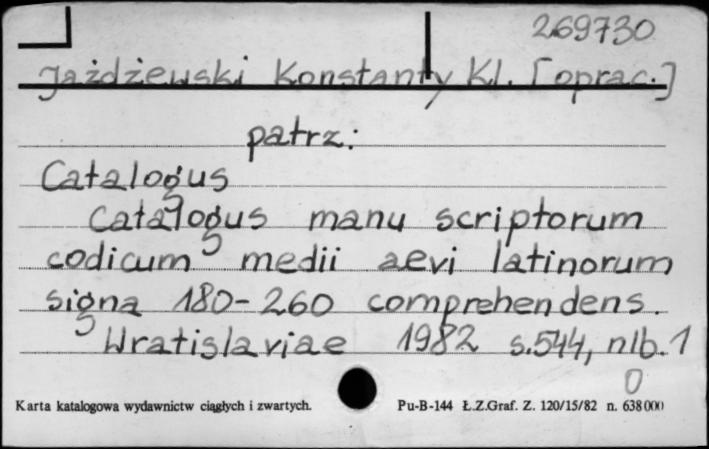 269730
Jażdżewski Konstanty Kl. [oprac.]
patrz:
Catalogus
Catalogus manu scriptorum
codicum medii aevi latinorum
signa 180-260 comprehendens.
Wratislaviae 1982 s.544, nlb.1
0
Karta katalogowa wydawnictw ciągłych i zwartych. Pu-B-144 Ł.Z.Graf. Z. 120/15/82 n. 638000